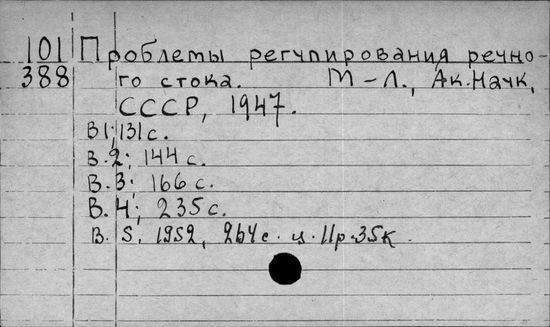 101 Проблемы регулирования речно-
388 го стока. М-Л., Ак.Наук,
СССР, 1947.
В1; 131 с.
В.2; 144 с.
В.3; 166 с.
В.4; 235 с.
В. 5. 1952, 264 с. ц. 11р.35к.